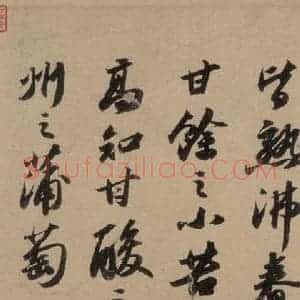 皆熟沸春
甘餘之小苦
高知甘酸之
州之蒲萄
Shufaziliao.com